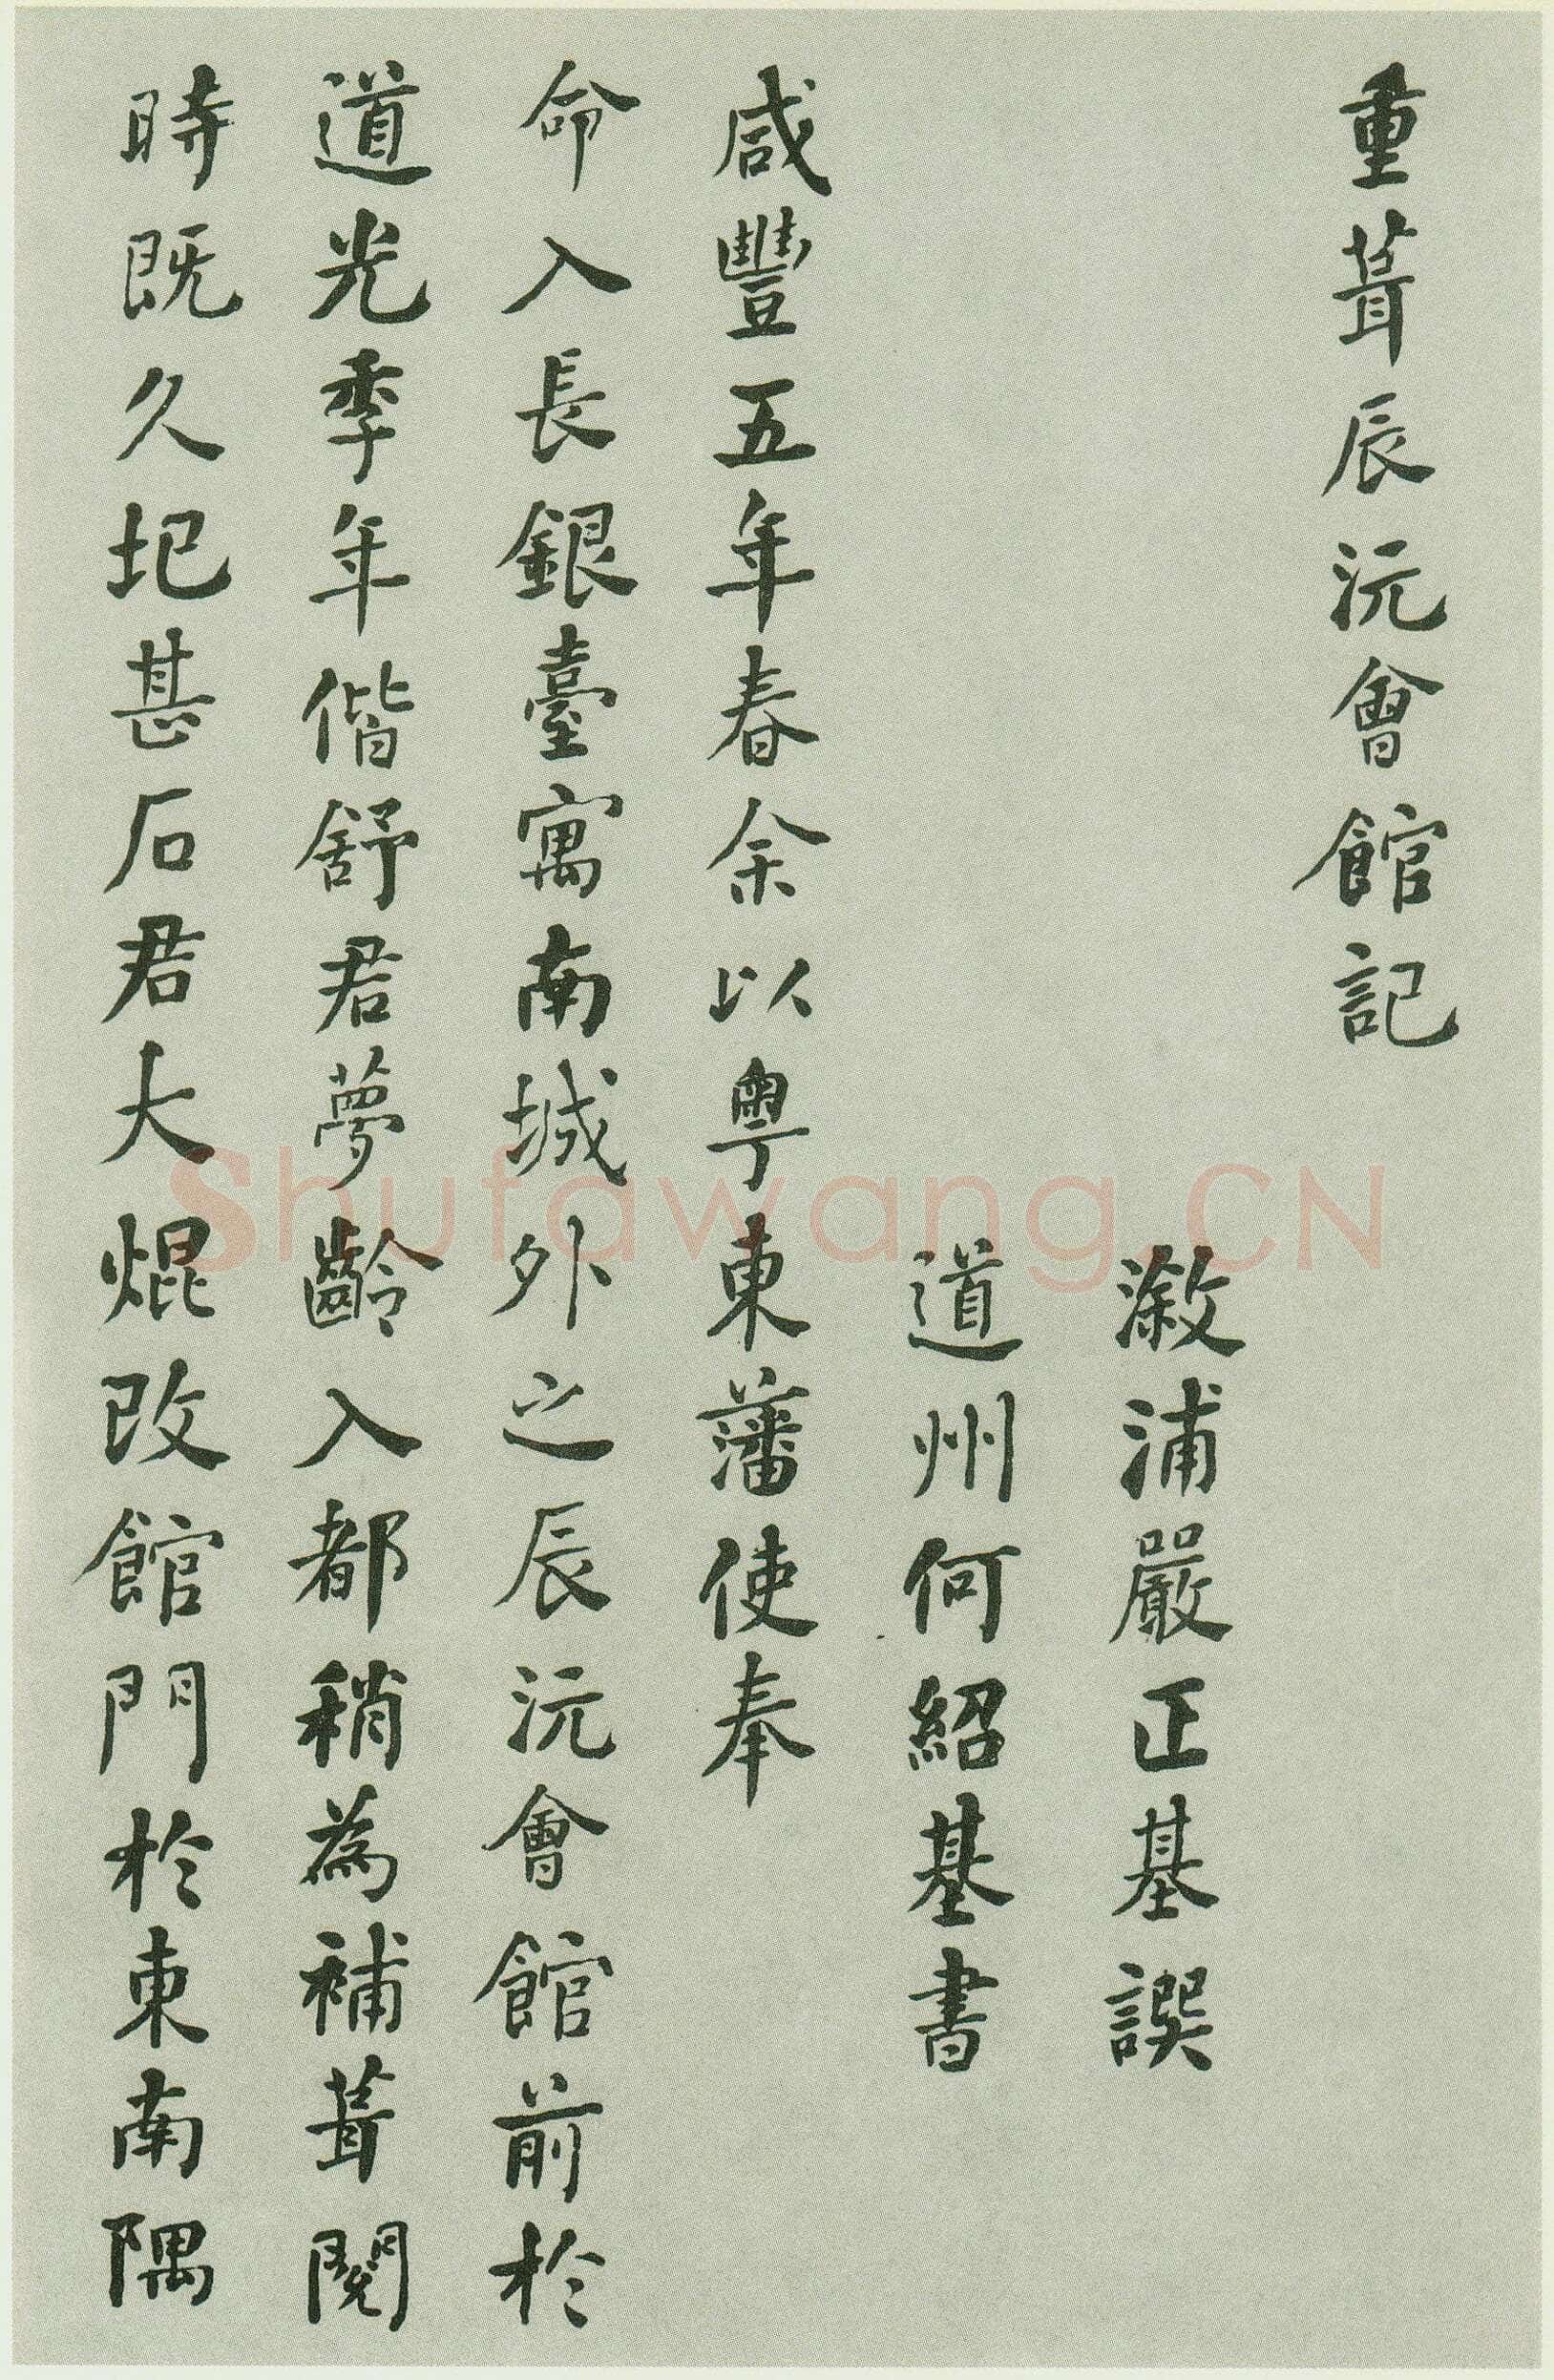 重葺辰沅會館記
漵浦嚴正基譔
道州何紹基書
咸豐五年春余以粵東藩使奉
命入長銀臺寓南城外之辰沅會館前於
道光季年偕舒君夢齡入都稍為補葺閱
時既久圯甚石君大焜改館門於東南隅
Shufawang.CN